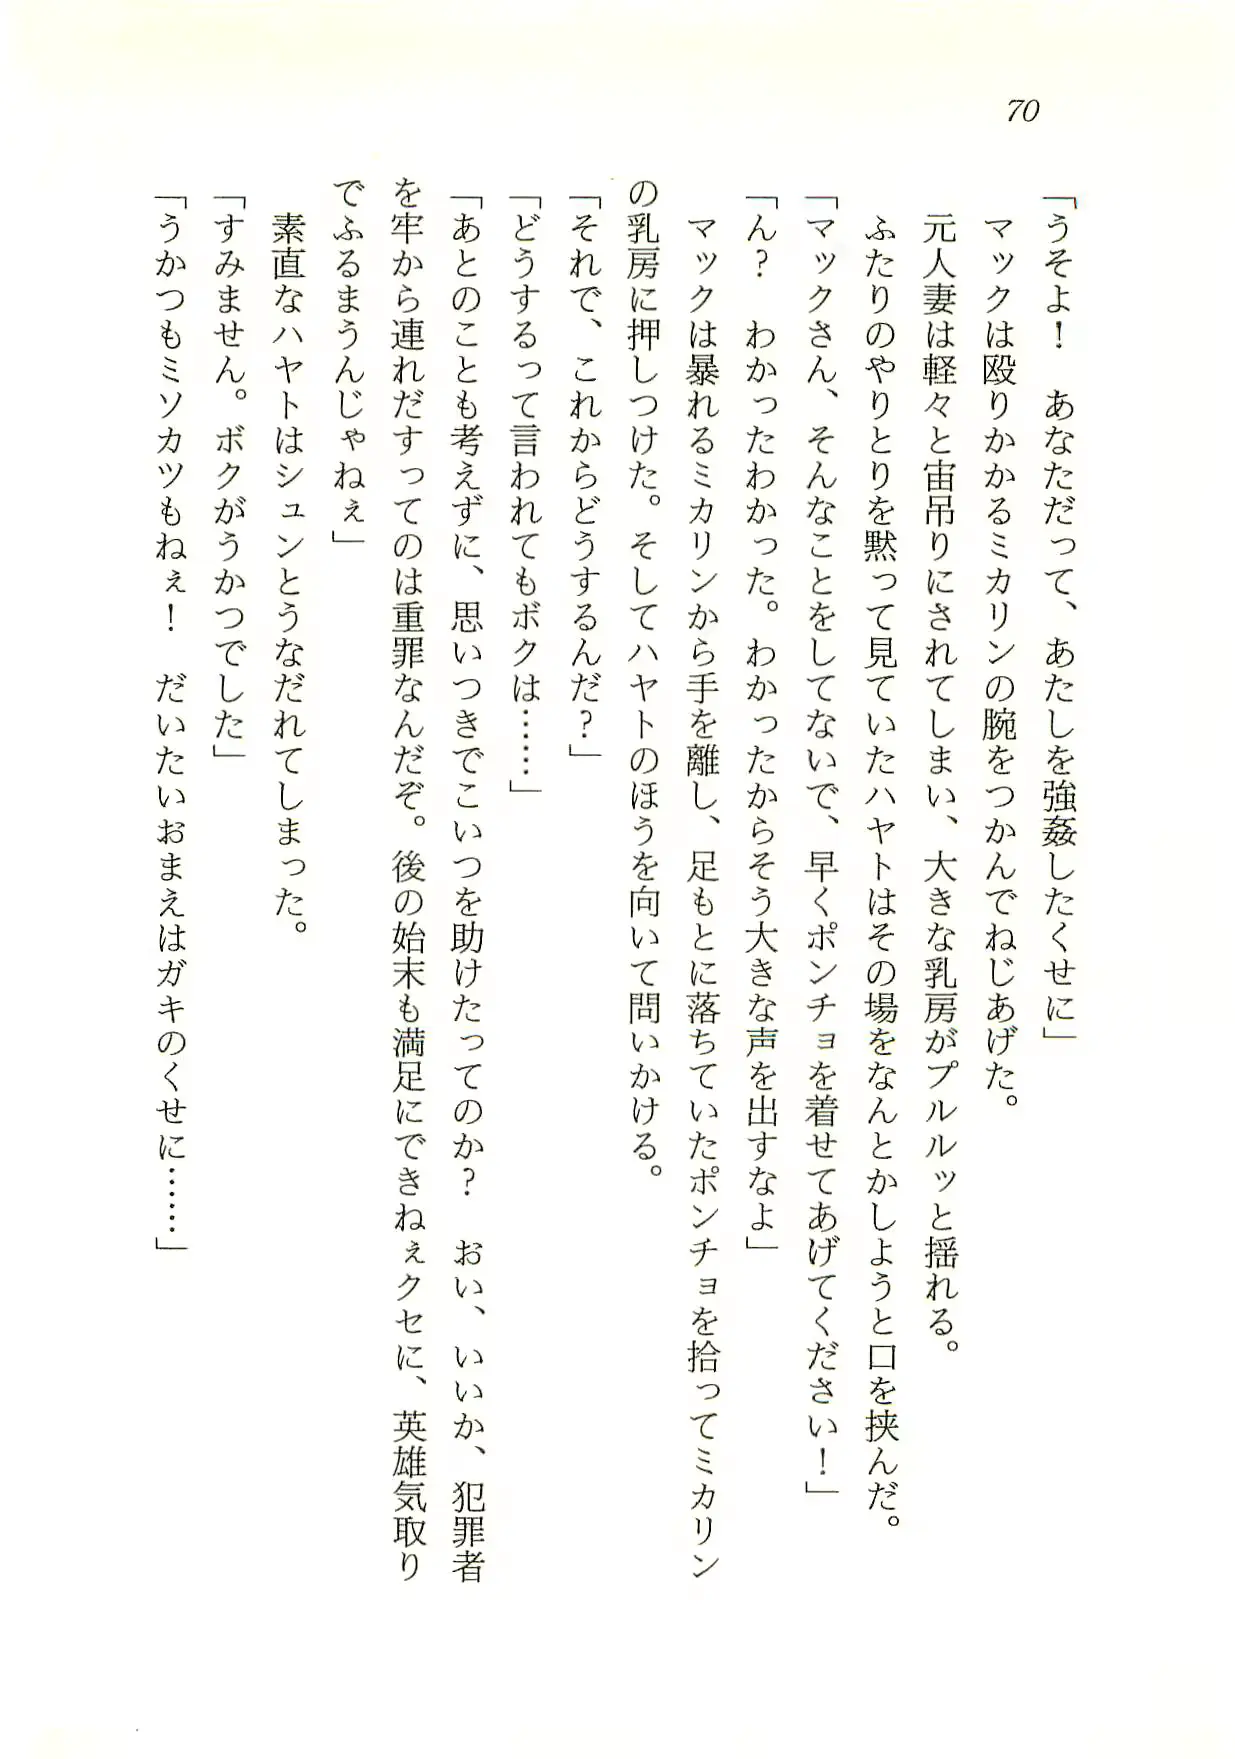 70
「うそよ！　あなただって、あたしを強姦したくせに」
　マックは殴りかかるミカリンの腕をつかんでねじあげた。
　元人妻は軽々と宙吊りにされてしまい、大きな乳房がプルルッと揺れる。
　ふたりのやりとりを黙って見ていたハヤトはその場をなんとかしようと口を挟んだ。
「マックさん、そんなことをしてないで、早くポンチョを着せてあげてください！」
「ん？　わかったわかった。わかったからそう大きな声を出すなよ」
　マックは暴れるミカリンから手を離し、足もとに落ちていたポンチョを拾ってミカリン
の乳房に押しつけた。そしてハヤトのほうを向いて問いかける。
「それで、これからどうするんだ？」
「どうするって言われてもボクは……」
「あとのことも考えずに、思いつきでこいつを助けたってのか？　おい、いいか、犯罪者
を牢から連れだすってのは重罪なんだぞ。後の始末も満足にできねぇクセに、英雄気取り
でふるまうんじゃねぇ」
　素直なハヤトはシュンとうなだれてしまった。
「すみません。ボクがうかつでした」
「うかつもミソカツもねぇ！　だいたいおまえはガキのくせに……」